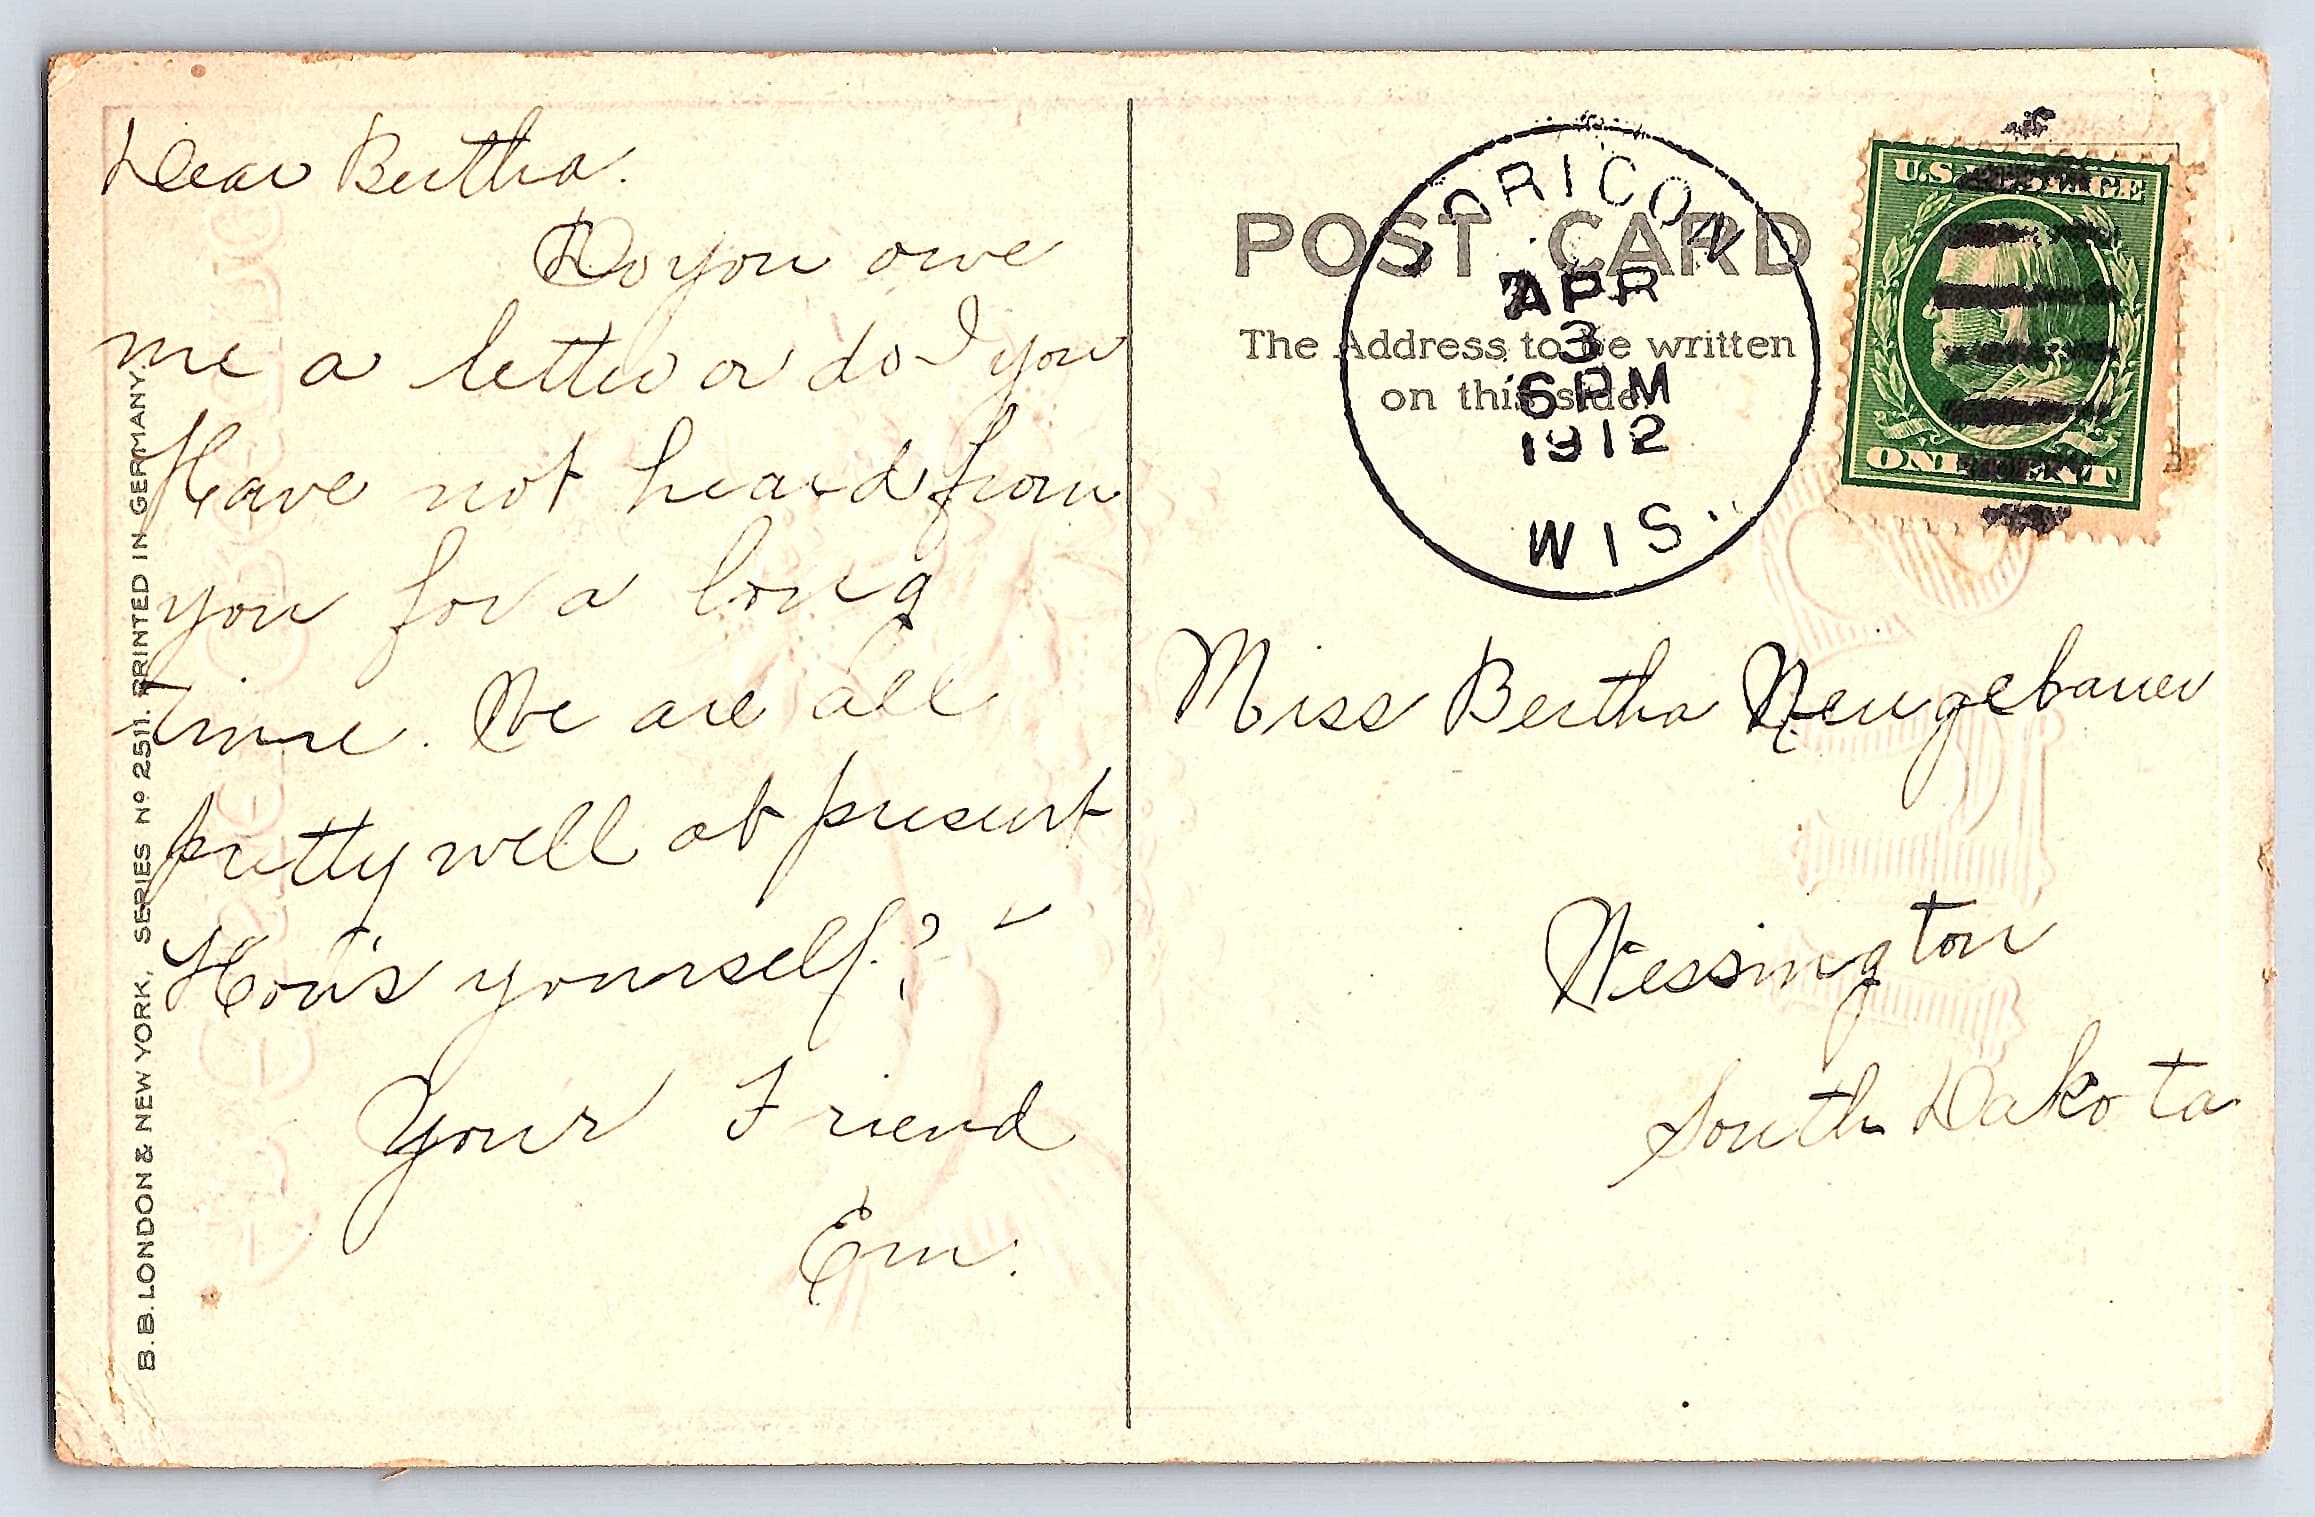 Dear Bertha.
Do you owe
me a letter or do I you
Have not heard from
you for a long
time. We are all
pretty well at present
How's yourself?
Your Friend
Em.
B.B. LONDON & NEW YORK. SERIES Nº 2511. PRINTED IN GERMANY.
POST CARD
The Address to be written
on this side.
HORICON
APR
3
6 PM
1912
WIS.
U.S. POSTAGE
ONE CENT
Miss Bertha Neugebauer
Wessington
South Dakota